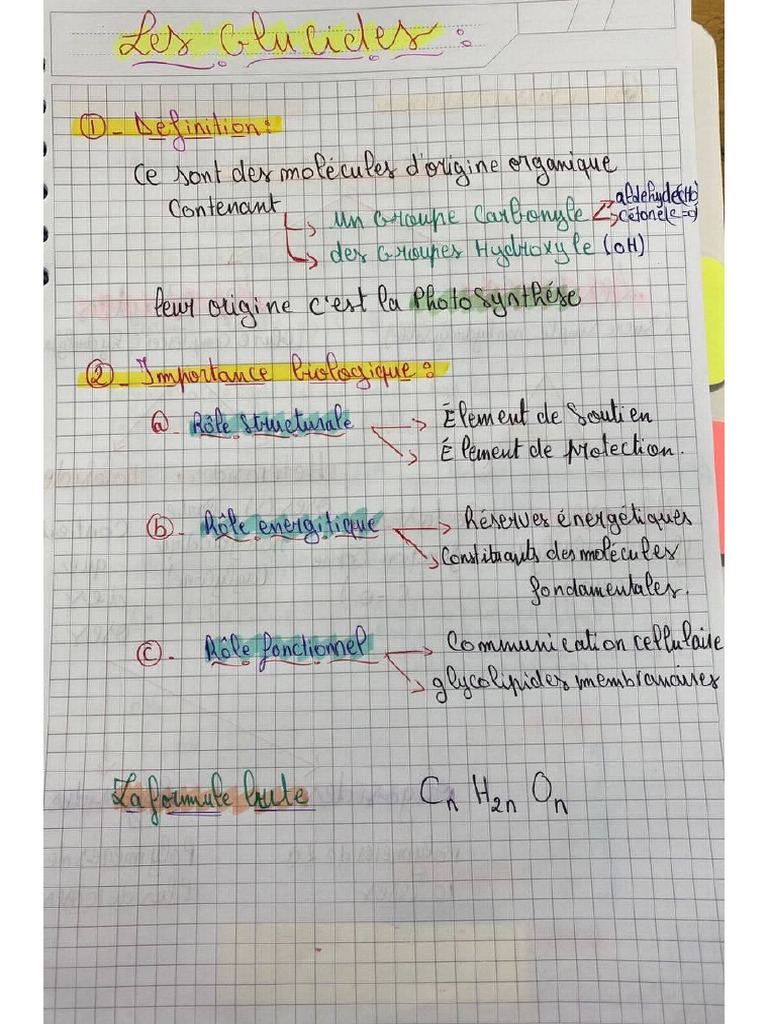 Les Glucides :
① - Definition :
Ce sont des molécules d'origine organique
Contenant
un Groupe Carbonyle
aldehyde(H)
cétone(c=o)
des Groupes Hydroxyle (OH)
leur origine c'est la Photosynthése
② - Importance biologique :
ⓐ - Rôle structurale
Élement de soutien
Élément de protection.
ⓑ - Rôle energitique
Réserves énergétiques
Constituants des molécules
fondamentales.
ⓒ - Rôle fonctionnel
Communication cellulaire
glycolipides membranaires
La formule brute
Cₙ H₂ₙ Oₙ